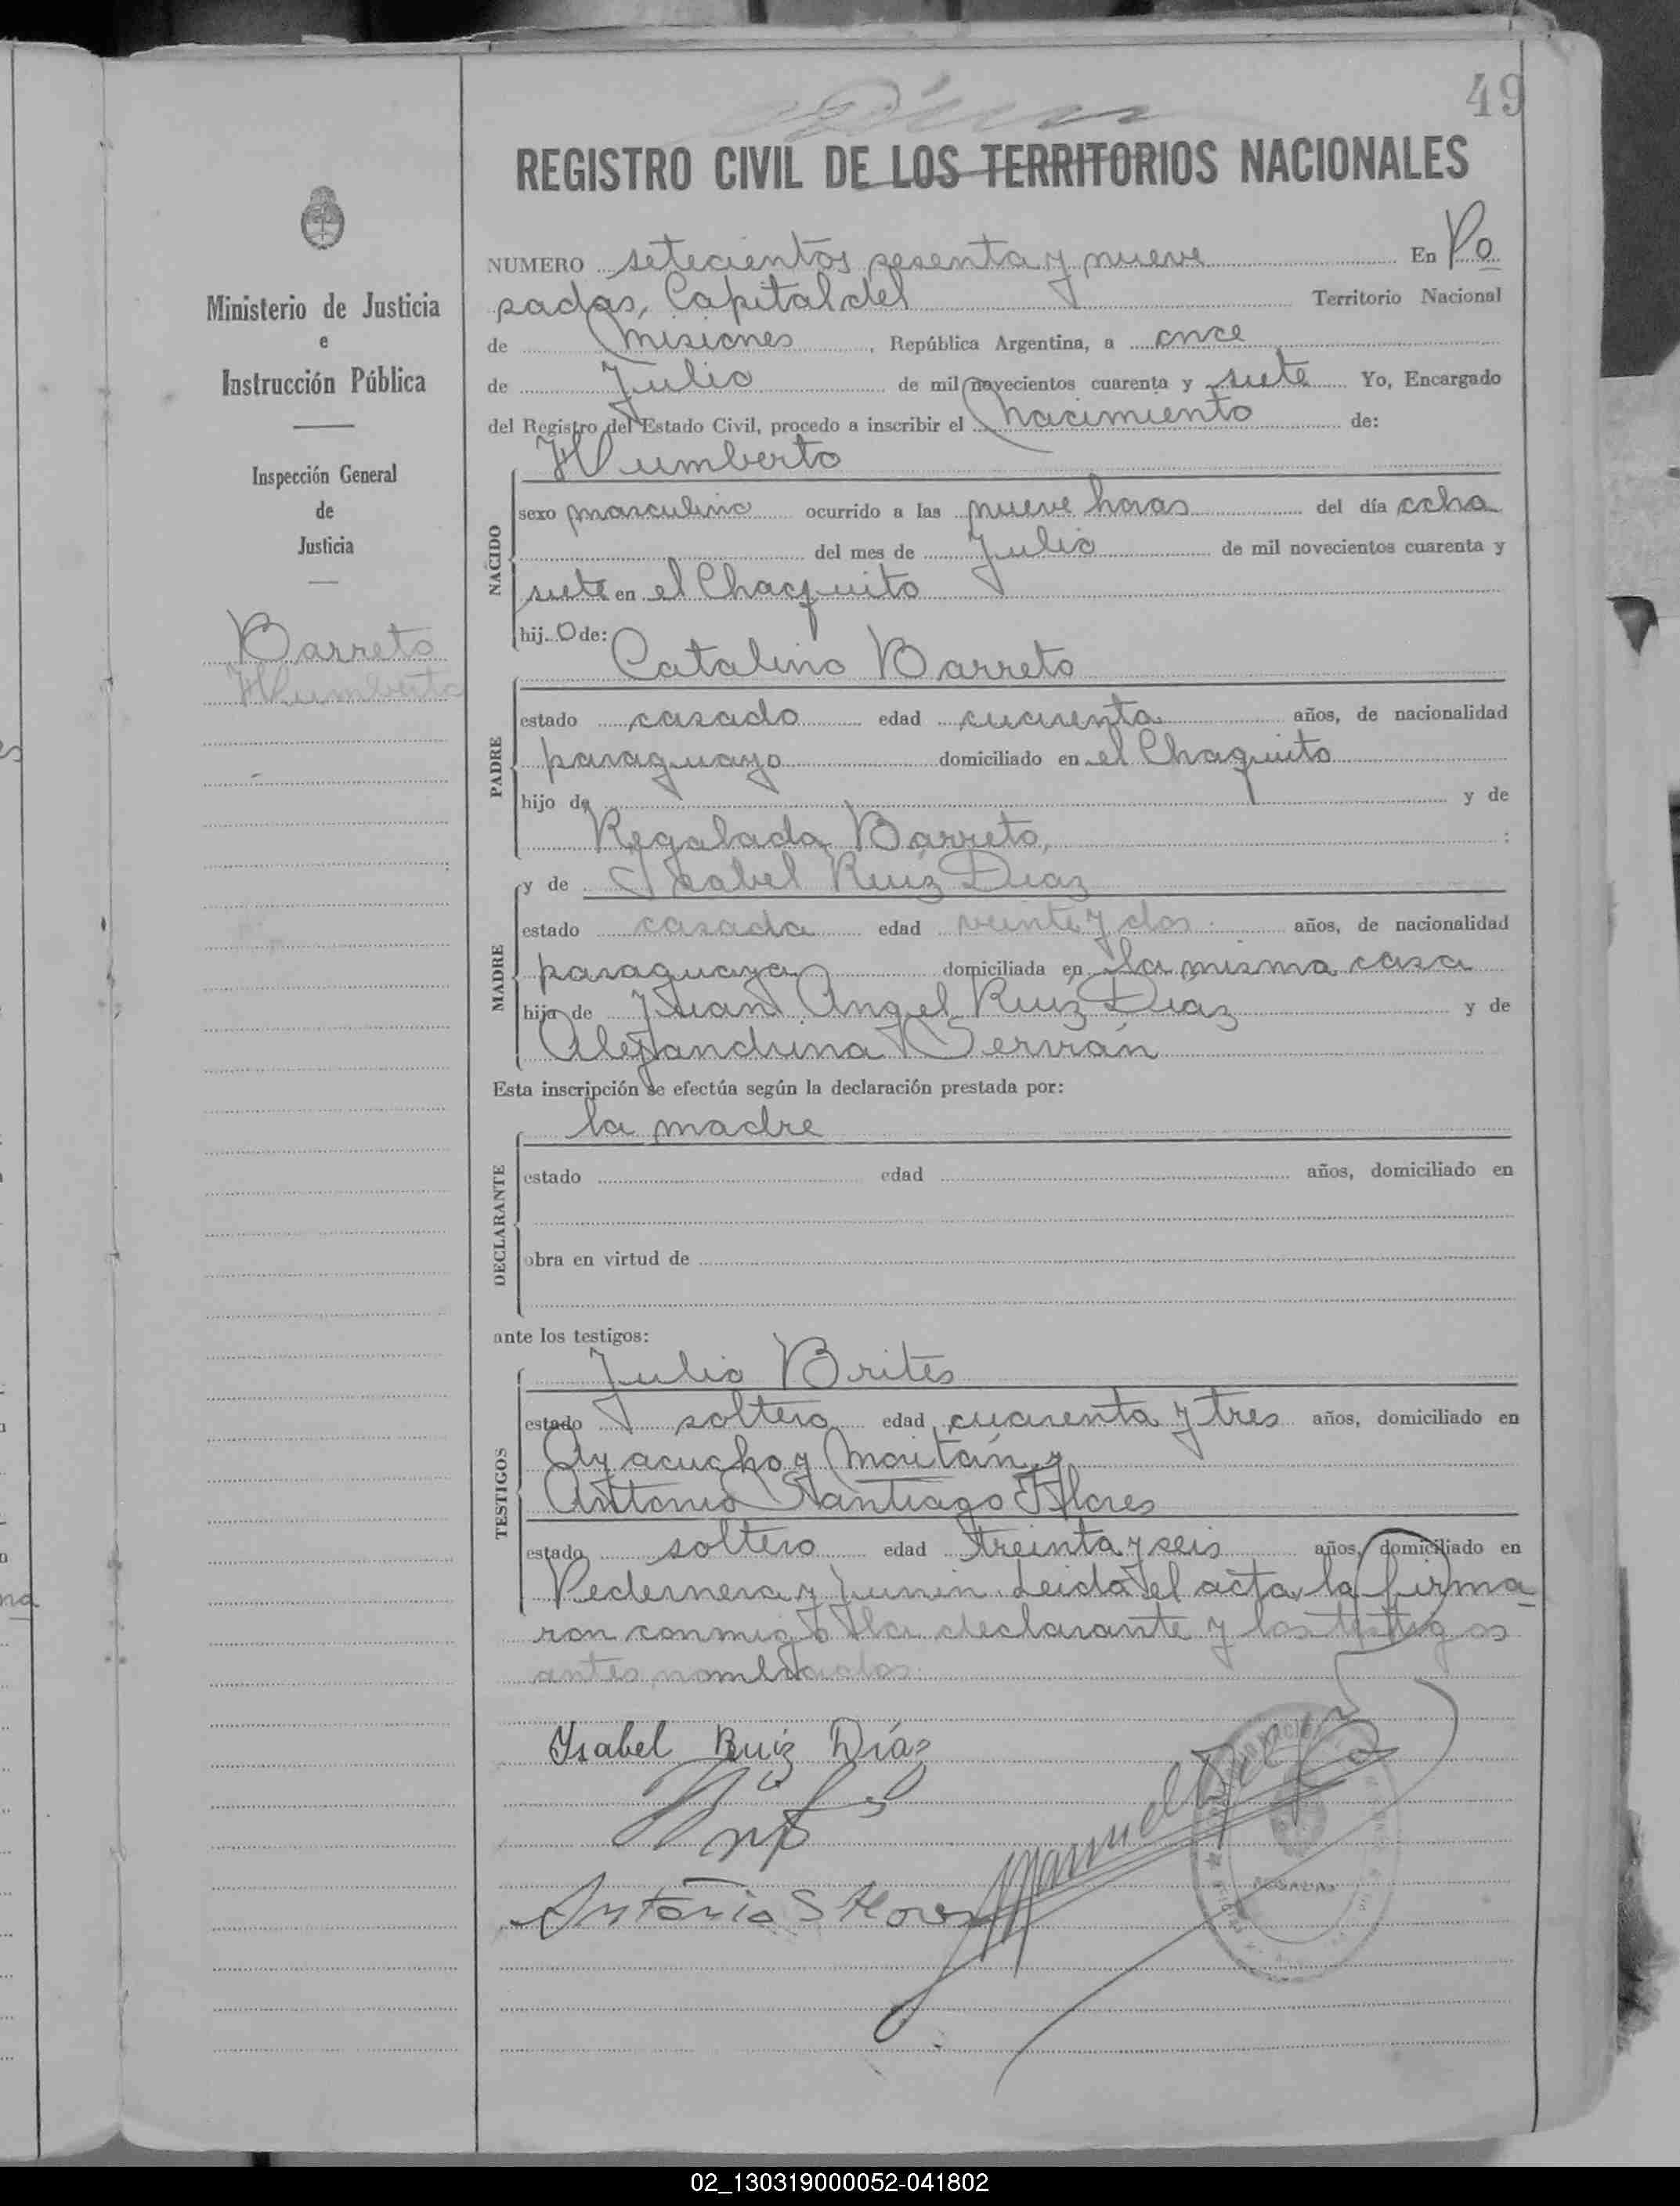 49
REGISTRO CIVIL DE LOS TERRITORIOS NACIONALES
Ministerio de Justicia
e
Instrucción Pública
Inspección General
de
Justicia
Barreto
Humberto
NUMERO setecientos sesenta y nueve En Po
sadas, Capital del Territorio Nacional
de Misiones, República Argentina, a once
de Julio de mil novecientos cuarenta y siete Yo, Encargado
del Registro del Estado Civil, procedo a inscribir el nacimiento de:
Humberto
NACIDO
sexo masculino ocurrido a las nueve horas del día ocho
del mes de Julio de mil novecientos cuarenta y
siete en el Chaquito
hij.o de:
Catalino Barreto
PADRE
estado casado edad cuarenta años, de nacionalidad
paraguayo domiciliado en el Chaquito
hijo de y de
Regalada Barreto,
MADRE
y de Isabel Ruiz Diaz
estado casada edad veinte y dos años, de nacionalidad
paraguaya domiciliada en la misma casa
hija de Juan Angel Ruiz Diaz y de
Alejandrina Servián
Esta inscripción se efectúa según la declaración prestada por:
la madre
DECLARANTE
estado edad años, domiciliado en
obra en virtud de
ante los testigos:
Julio Brites
TESTIGOS
estado soltero edad cuarenta y tres años, domiciliado en
Ayacucho y Moritán y
Antonio Santiago Flores
estado soltero edad treinta y seis años, domiciliado en
Pedernera y Junin. Leida el acta, la firma
ron conmigo la declarante y los testigos
antes nombrados.
Ysabel Ruiz Díaz
Antonio S Flores
Manuel
POSADAS
02_130319000052-041802